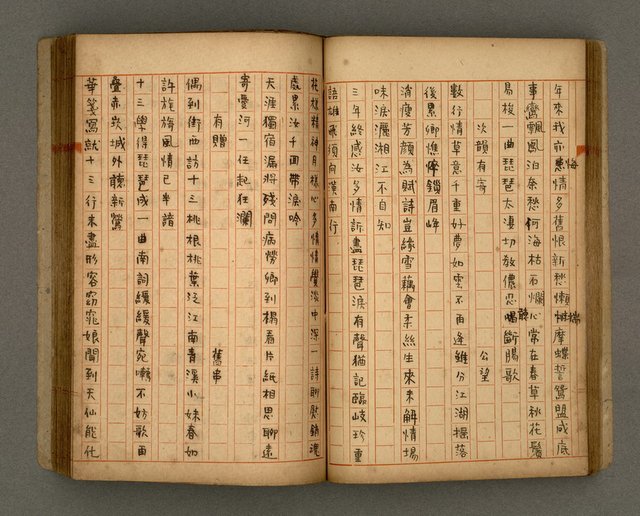 年來我亦悔情多舊恨新愁懶揣摩蝶誓鴛盟咸底
事鸞飄鳳泊奈愁何海枯石爛心常在春草秋花鬢
易梭一曲琵琶太淒切教儂忍聽唱斷腸歌
次韻有寄 公望
數行情草意千重好夢如雲不再逢維分江湖搖落
後累卿憔悴鎖眉峰
消瘦芳顏為賦詩豈緣雪藕會柔絲生來未解情場
味淚灑湘江不自知
三年終感汝多情訴盡琵琶淚有聲猶記臨岐珍重
語雄飛須向漢南行
花旗精神月樣心多情情愛淡中深一詩聊慰銷魂
處累汝千回帶淚吟
天涯獨宿漏將殘問病勞卿到榻看片紙相思聊遠
寄靈河一任起狂瀾
有贈 舊串
偶到街西訪十三桃根桃葉泛江南青溪小妹春如
許旎旖風情已半諳
十三學得琵琶成一曲南詞緩緩聲宛囀不妨歌再
疊赤崁城外聽新鶯
華箋寫就十三行未盡形容窈窕娘聞到天仙能化